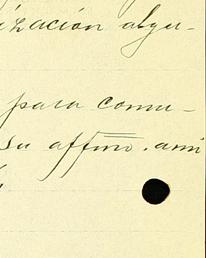 ización algu-
para comu-
su affmo. ami